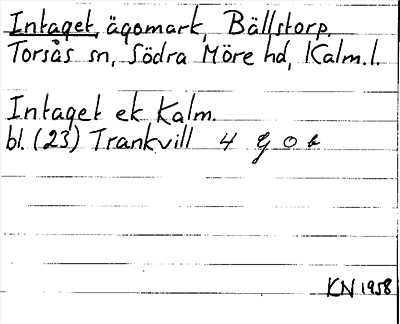 Intaget, ägomark, Bällstorp.
Torsås sn, Södra Möre hd, Kalm. l.
Intaget ek Kalm.
bl. (23) Trankvill 4 g o b
KN 1958